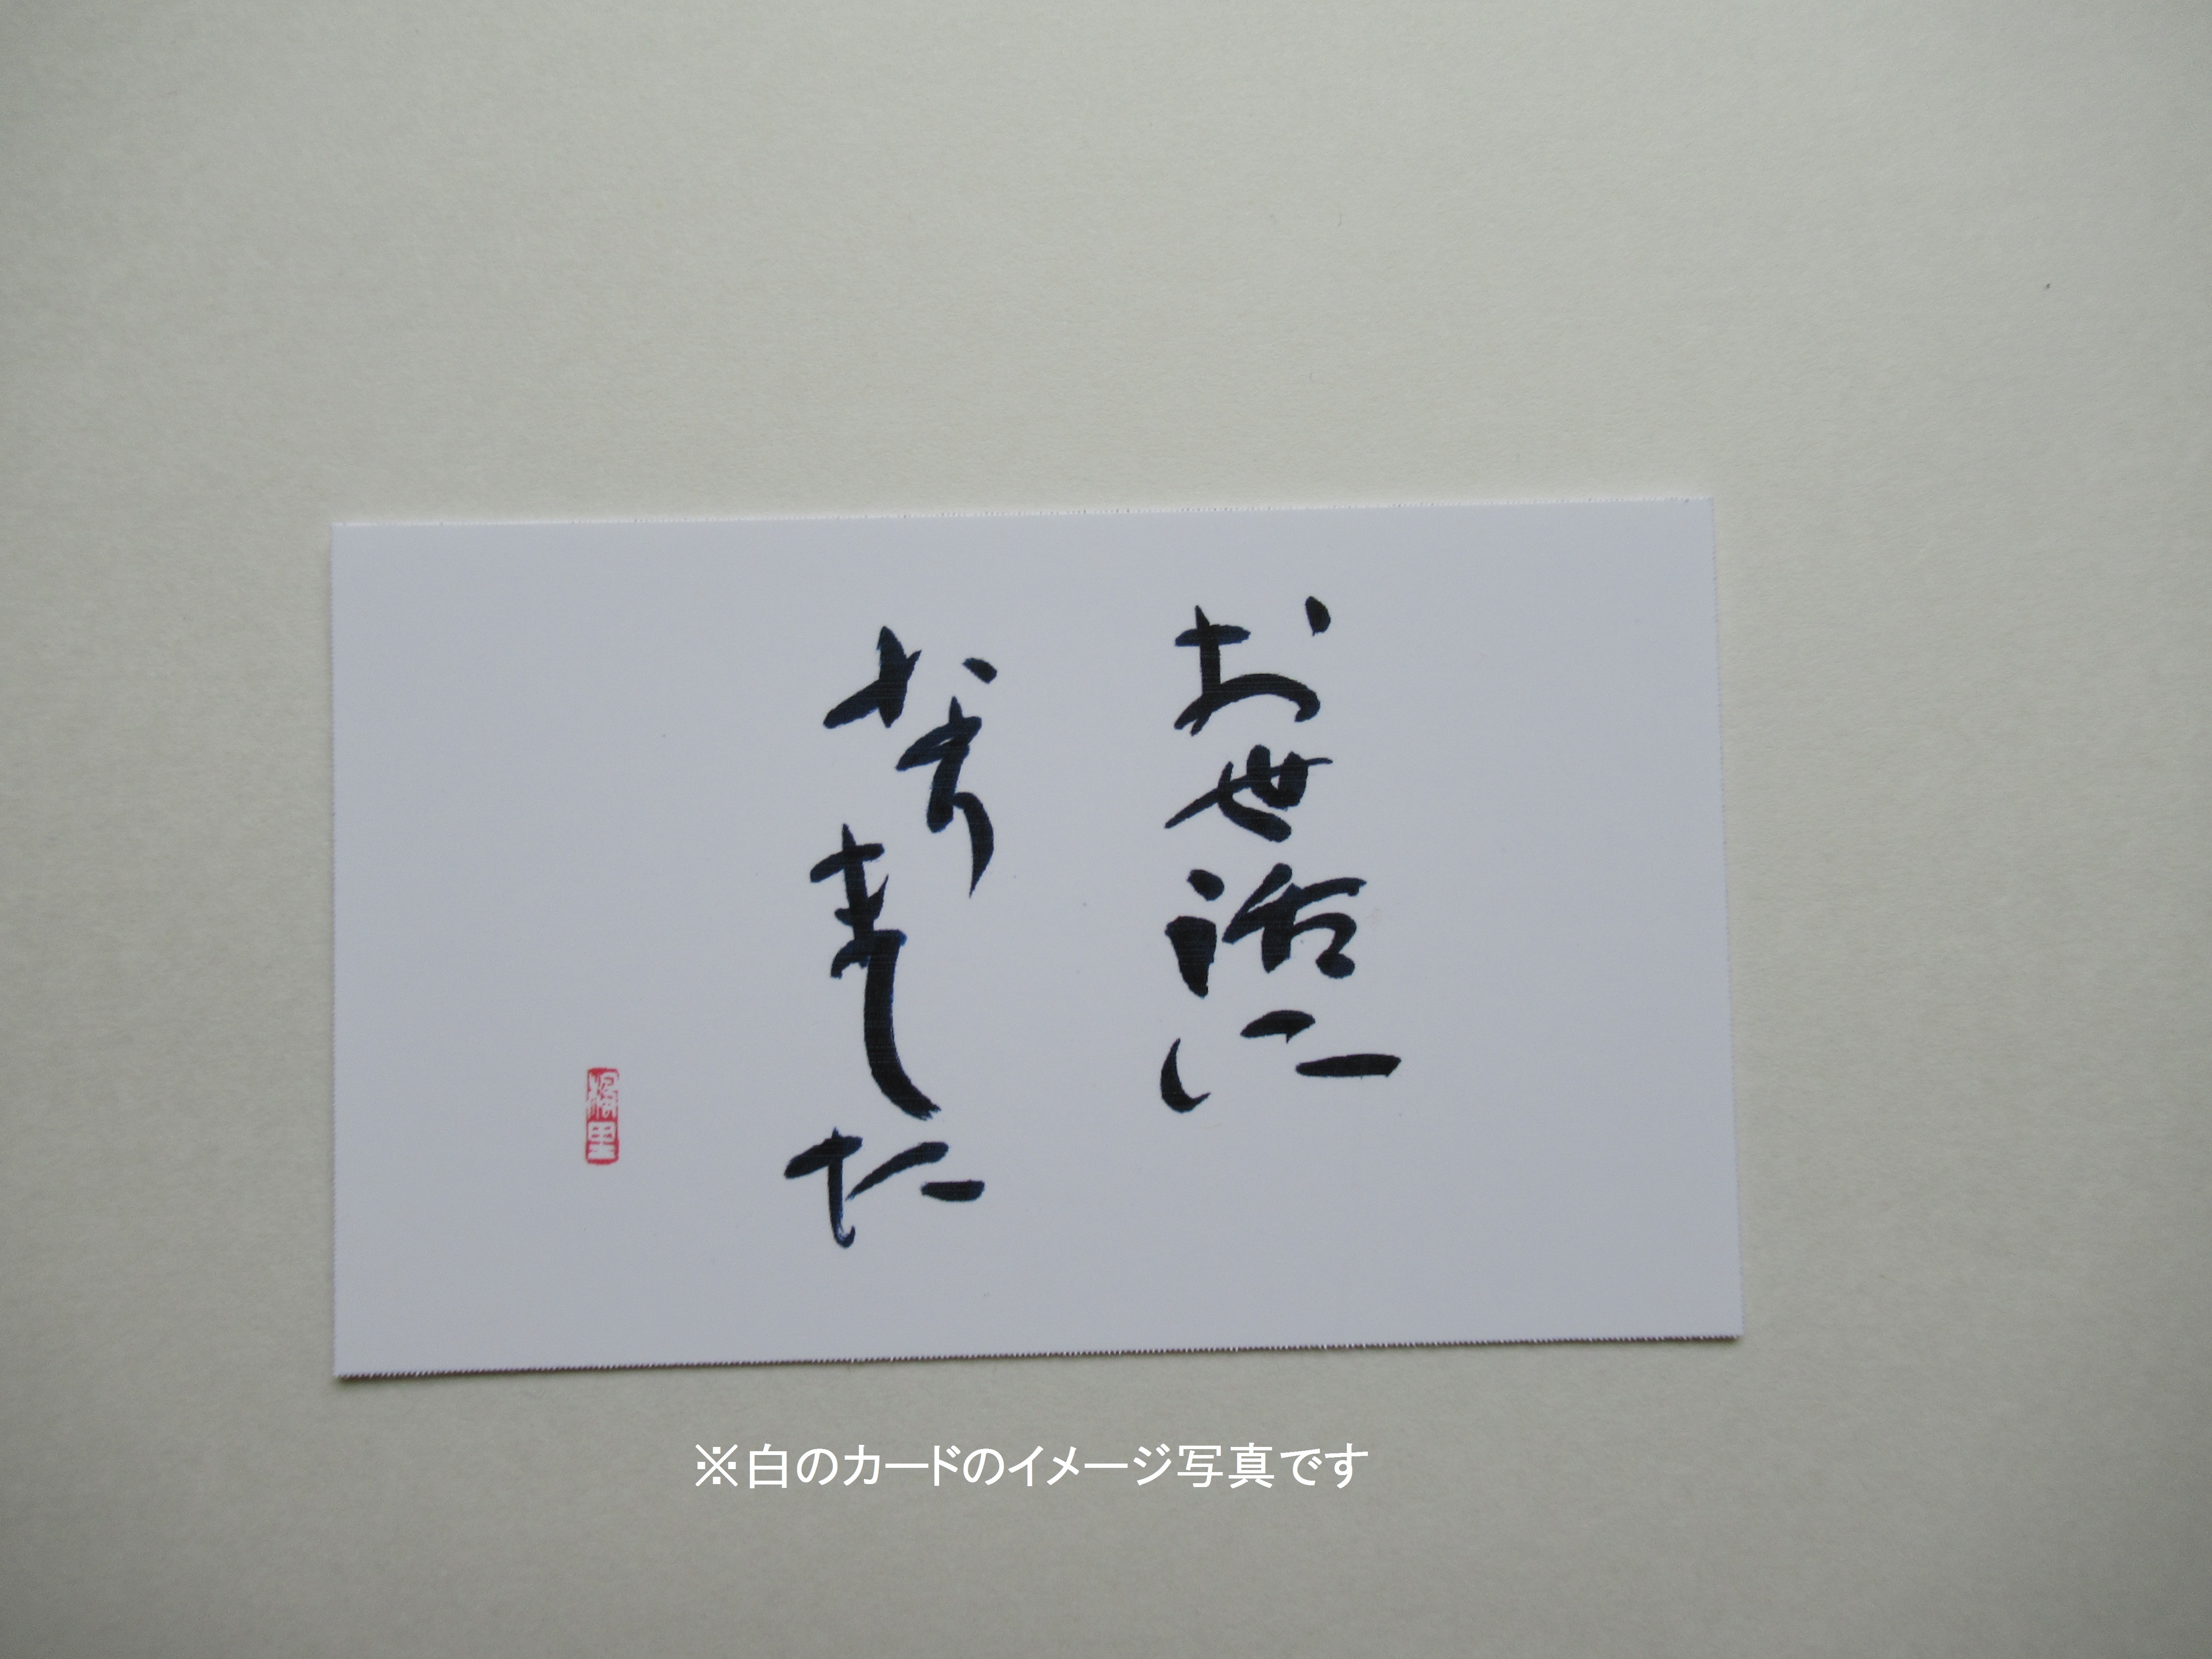 お世話に
なりました
※白のカードのイメージ写真です